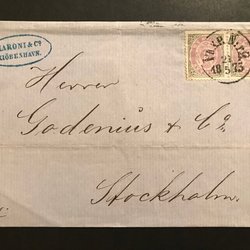 ARONI & Co.
KJÖBENHAVN.
Herrer
Godenius & Co
Stockholm.